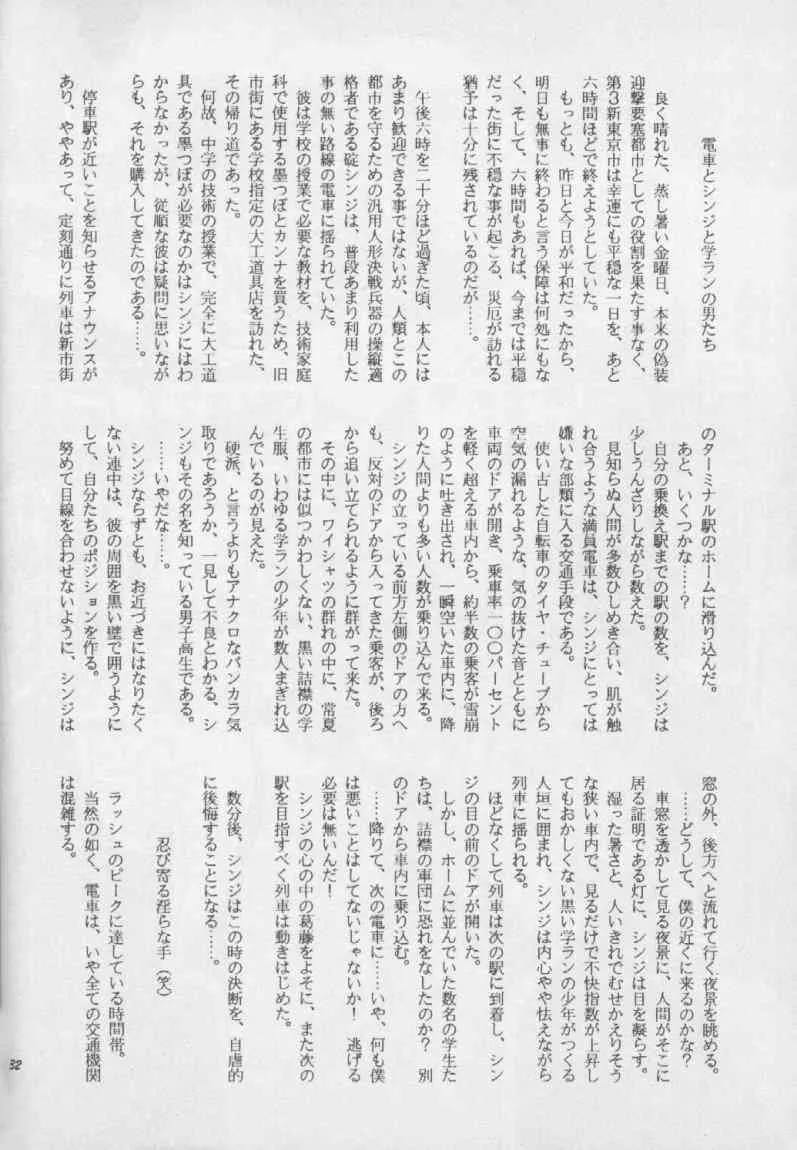 電車とシンジと学ランの男たち
良く晴れた、蒸し暑い金曜日、本来の偽装
迎撃要塞都市としての役割を果たす事なく、
第3新東京市は幸運にも平穏な一日を、あと
六時間ほどで終えようとしていた。
もっとも、昨日と今日が平和だったから、
明日も無事に終わると言う保障は何処にもな
く、そして、六時間もあれば、今までは平穏
だった街に不穏な事が起こる、災厄が訪れる
猶予は十分に残されているのだが……。
午後六時を二十分ほど過ぎた頃、本人には
あまり歓迎できる事ではないが、人類とこの
都市を守るための汎用人形決戦兵器の操縦適
格者である碇シンジは、普段あまり利用した
事の無い路線の電車に揺られていた。
彼は学校の授業で必要な教材を、技術家庭
科で使用する墨つぼとカンナを買うため、旧
市街にある学校指定の大工道具店を訪れた、
その帰り道であった。
何故、中学の技術の授業で、完全に大工道
具である墨つぼが必要なのかはシンジにはわ
からなかったが、従順な彼は疑問に思いなが
らも、それを購入してきたのである……。
停車駅が近いことを知らせるアナウンスが
あり、ややあって、定刻通りに列車は新市街
のターミナル駅のホームに滑り込んだ。
あと、いくつかな……?
自分の乗換え駅までの駅の数を、シンジは
少しうんざりしながら数えた。
見知らぬ人間が多数ひしめき合い、肌が触
れ合うような満員電車は、シンジにとっては
嫌いな部類に入る交通手段である。
使い古した自転車のタイヤ・チューブから
空気の漏れるような、気の抜けた音とともに
車両のドアが開き、乗車率一〇〇パーセント
を軽く超える車内から、約半数の乗客が雪崩
のように吐き出され、一瞬空いた車内に、降
りた人間よりも多い人数が乗り込んで来る。
シンジの立っている前方左側のドアの方へ
も、反対のドアから入ってきた乗客が、後ろ
から追い立てられるように群がって来た。
その中に、ワイシャツの群れの中に、常夏
の都市には似つかわしくない、黒い詰襟の学
生服、いわゆる学ランの少年が数人まぎれ込
んでいるのが見えた。
硬派、と言うよりもアナクロなバンカラ気
取りであろうか、一見して不良とわかる、シ
ンジもその名を知っている男子高生である。
……いやだな……。
シンジならずとも、お近づきにはなりたく
ない連中は、彼の周囲を黒い壁で囲うように
して、自分たちのポジションを作る。
努めて目線を合わせないように、シンジは
窓の外、後方へと流れて行く夜景を眺める。
……どうして、僕の近くに来るのかな?
車窓を透かして見る夜景に、人間がそこに
居る証明である灯に、シンジは目を凝らす。
湿った暑さと、人いきれでむせかえりそう
な狭い車内で、見るだけで不快指数が上昇し
てもおかしくない黒い学ランの少年がつくる
人垣に囲まれ、シンジは内心やや怯えながら
列車に揺られる。
ほどなくして列車は次の駅に到着し、シン
ジの目の前のドアが開いた。
しかし、ホームに並んでいた数名の学生た
ちは、詰襟の軍団に恐れをなしたのか? 別
のドアから車内に乗り込む。
……降りて、次の電車に……いや、何も僕
は悪いことはしてないじゃないか! 逃げる
必要は無いんだ!
シンジの心の中の葛藤をよそに、また次の
駅を目指すべく列車は動きはじめた。
数分後、シンジはこの時の決断を、自虐的
に後悔することになる……。
忍び寄る淫らな手(笑)
ラッシュのピークに達している時間帯。
当然の如く、電車は、いや全ての交通機関
は混雑する。
32